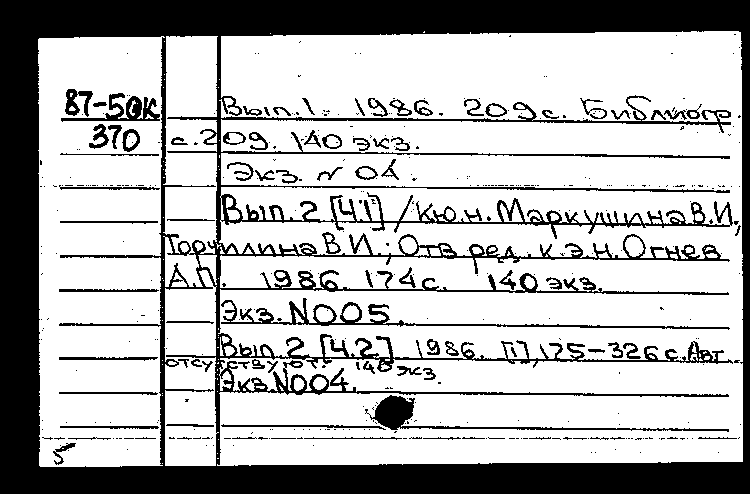 87-50К Вып. 1. 1986. 209 с. Библиогр.
370 с. 209. 140 экз.
Экз. N 04.
Вып. 2 [Ч.1] / К.ю.н. Маркушина В.И.,
Торчилина В.И.; Отв. ред. к.э.н. Огнев
А.П. 1986. 174 с. 140 экз.
Экз. N005.
Вып. 2 [Ч.2] 1986. [1], 175-326 с. Авт.
отсутствуют. 140 экз.
Экз. N004.
5